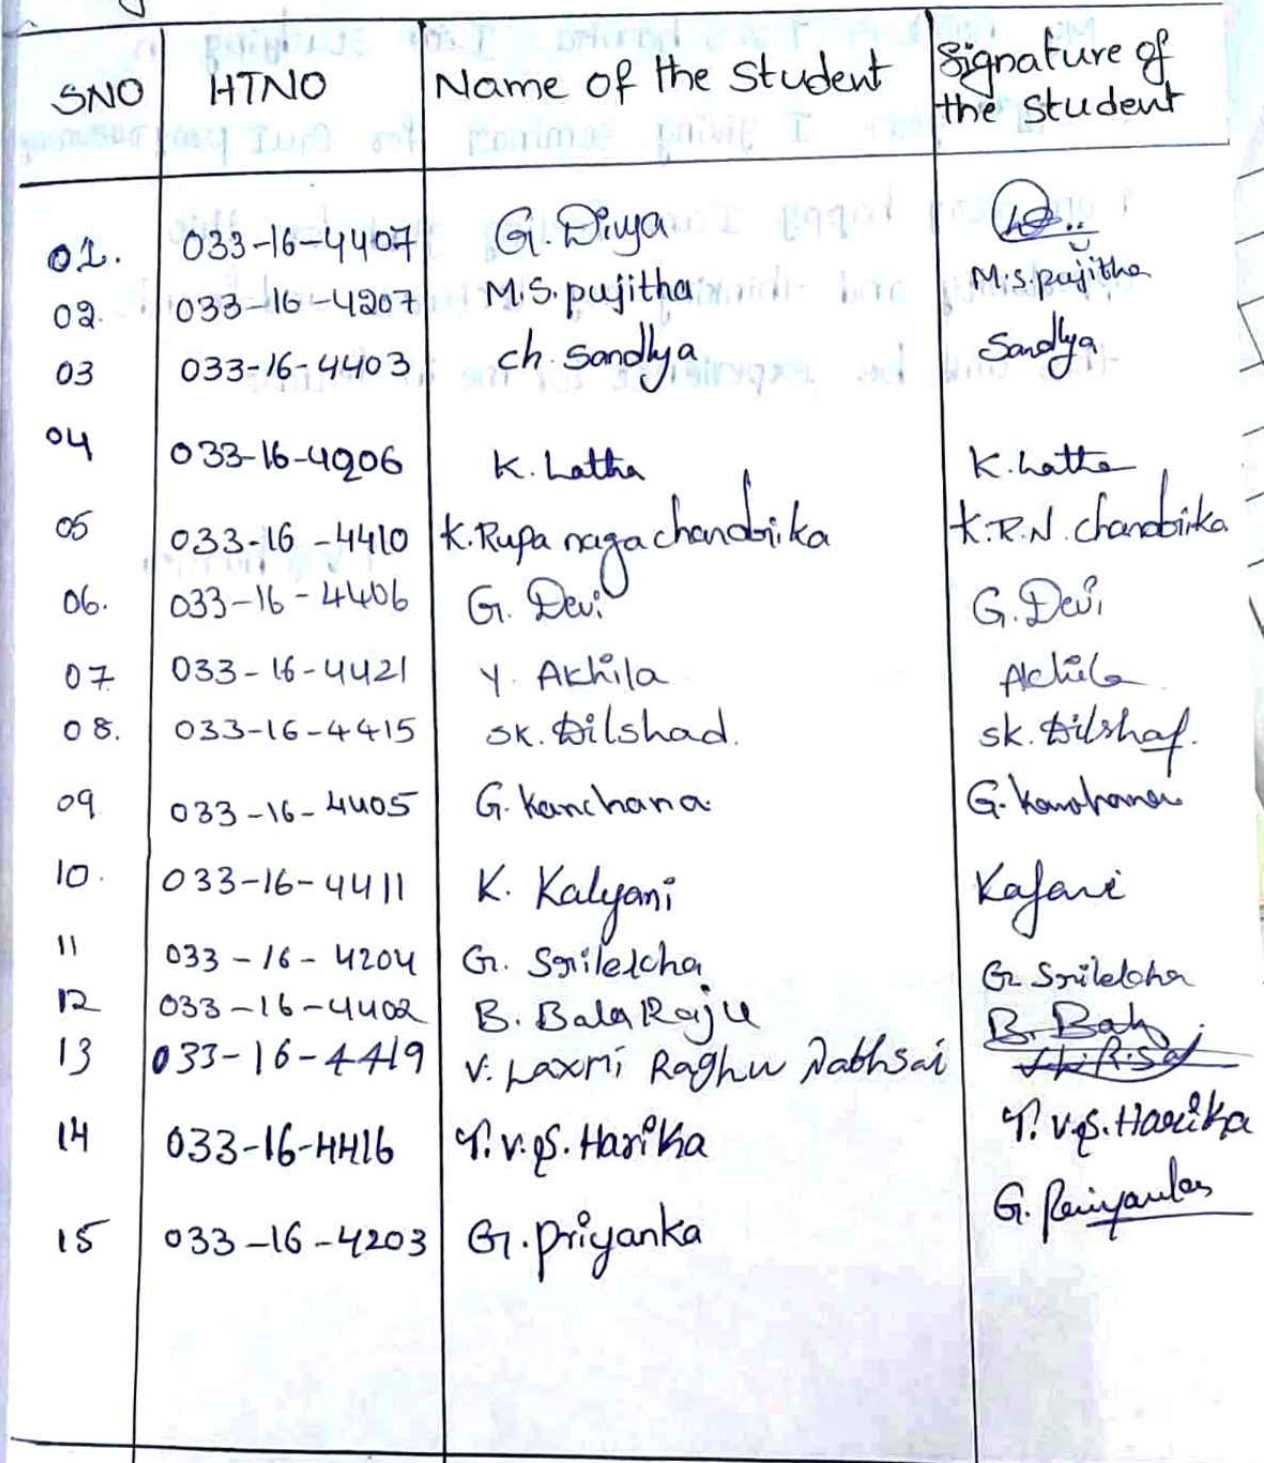 SNO HTNO Name of the Student Signature of the Student
01. 033-16-4407 G. Divya
02. 033-16-4207 M.S. pujitha M.S. pujitha
03 033-16-4403 ch. Sandhya Sandhya
04 033-16-4206 K. Latha K. Latha
05 033-16-4410 K. Rupa naga chandrika K.R.N. chandrika
06. 033-16-4406 G. Devi G. Devi
07 033-16-4421 Y. Akhila Akhila
08. 033-16-4415 SK. Dilshad. SK. Dilshad.
09 033-16-4405 G. Kanchana G. Kanchana
10. 033-16-4411 K. Kalyani Kalyani
11 033-16-4204 G. Srilekha G. Srilekha
12 033-16-4402 B. Bala Raju B. Bala
13 033-16-4419 V. Laxmi Raghu
14 033-16-4416 T.V.S. Harika T.V.S. Harika
15 033-16-4203 G. Priyanka G. Priyanka